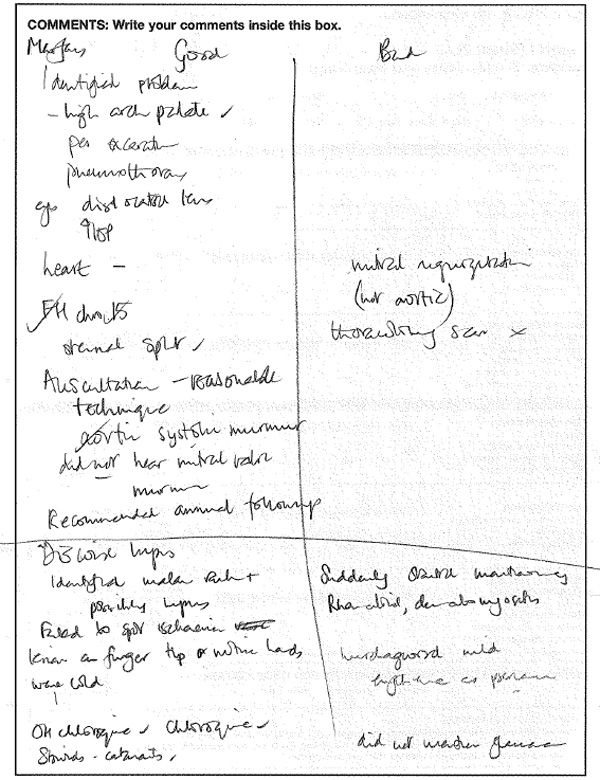 COMMENTS: Write your comments inside this box.
Marfans Good Bad
Identified problem
- high arch palate ✓
pneumothorax
eye dislocated lens
↑IOP
heart - mitral regurgitation
(not aortic)
FH
thoracotomy scar ×
sternal split ✓
Auscultation - reasonable
technique
aortic systolic murmur
did not hear mitral valve
murmur
Recommended annual followup
Discoid lupus
Identified malar rash +
possibly lupus
Suddenly started mentioning
Rheumatoid, dermatomyositis
Failed to spot ischaemic
on finger tip or notice hands
were cold
misdiagnosed mild
as
OH chloroquine ✓ chloroquine ✓
Steroids - cataracts,
did not mention glaucoma